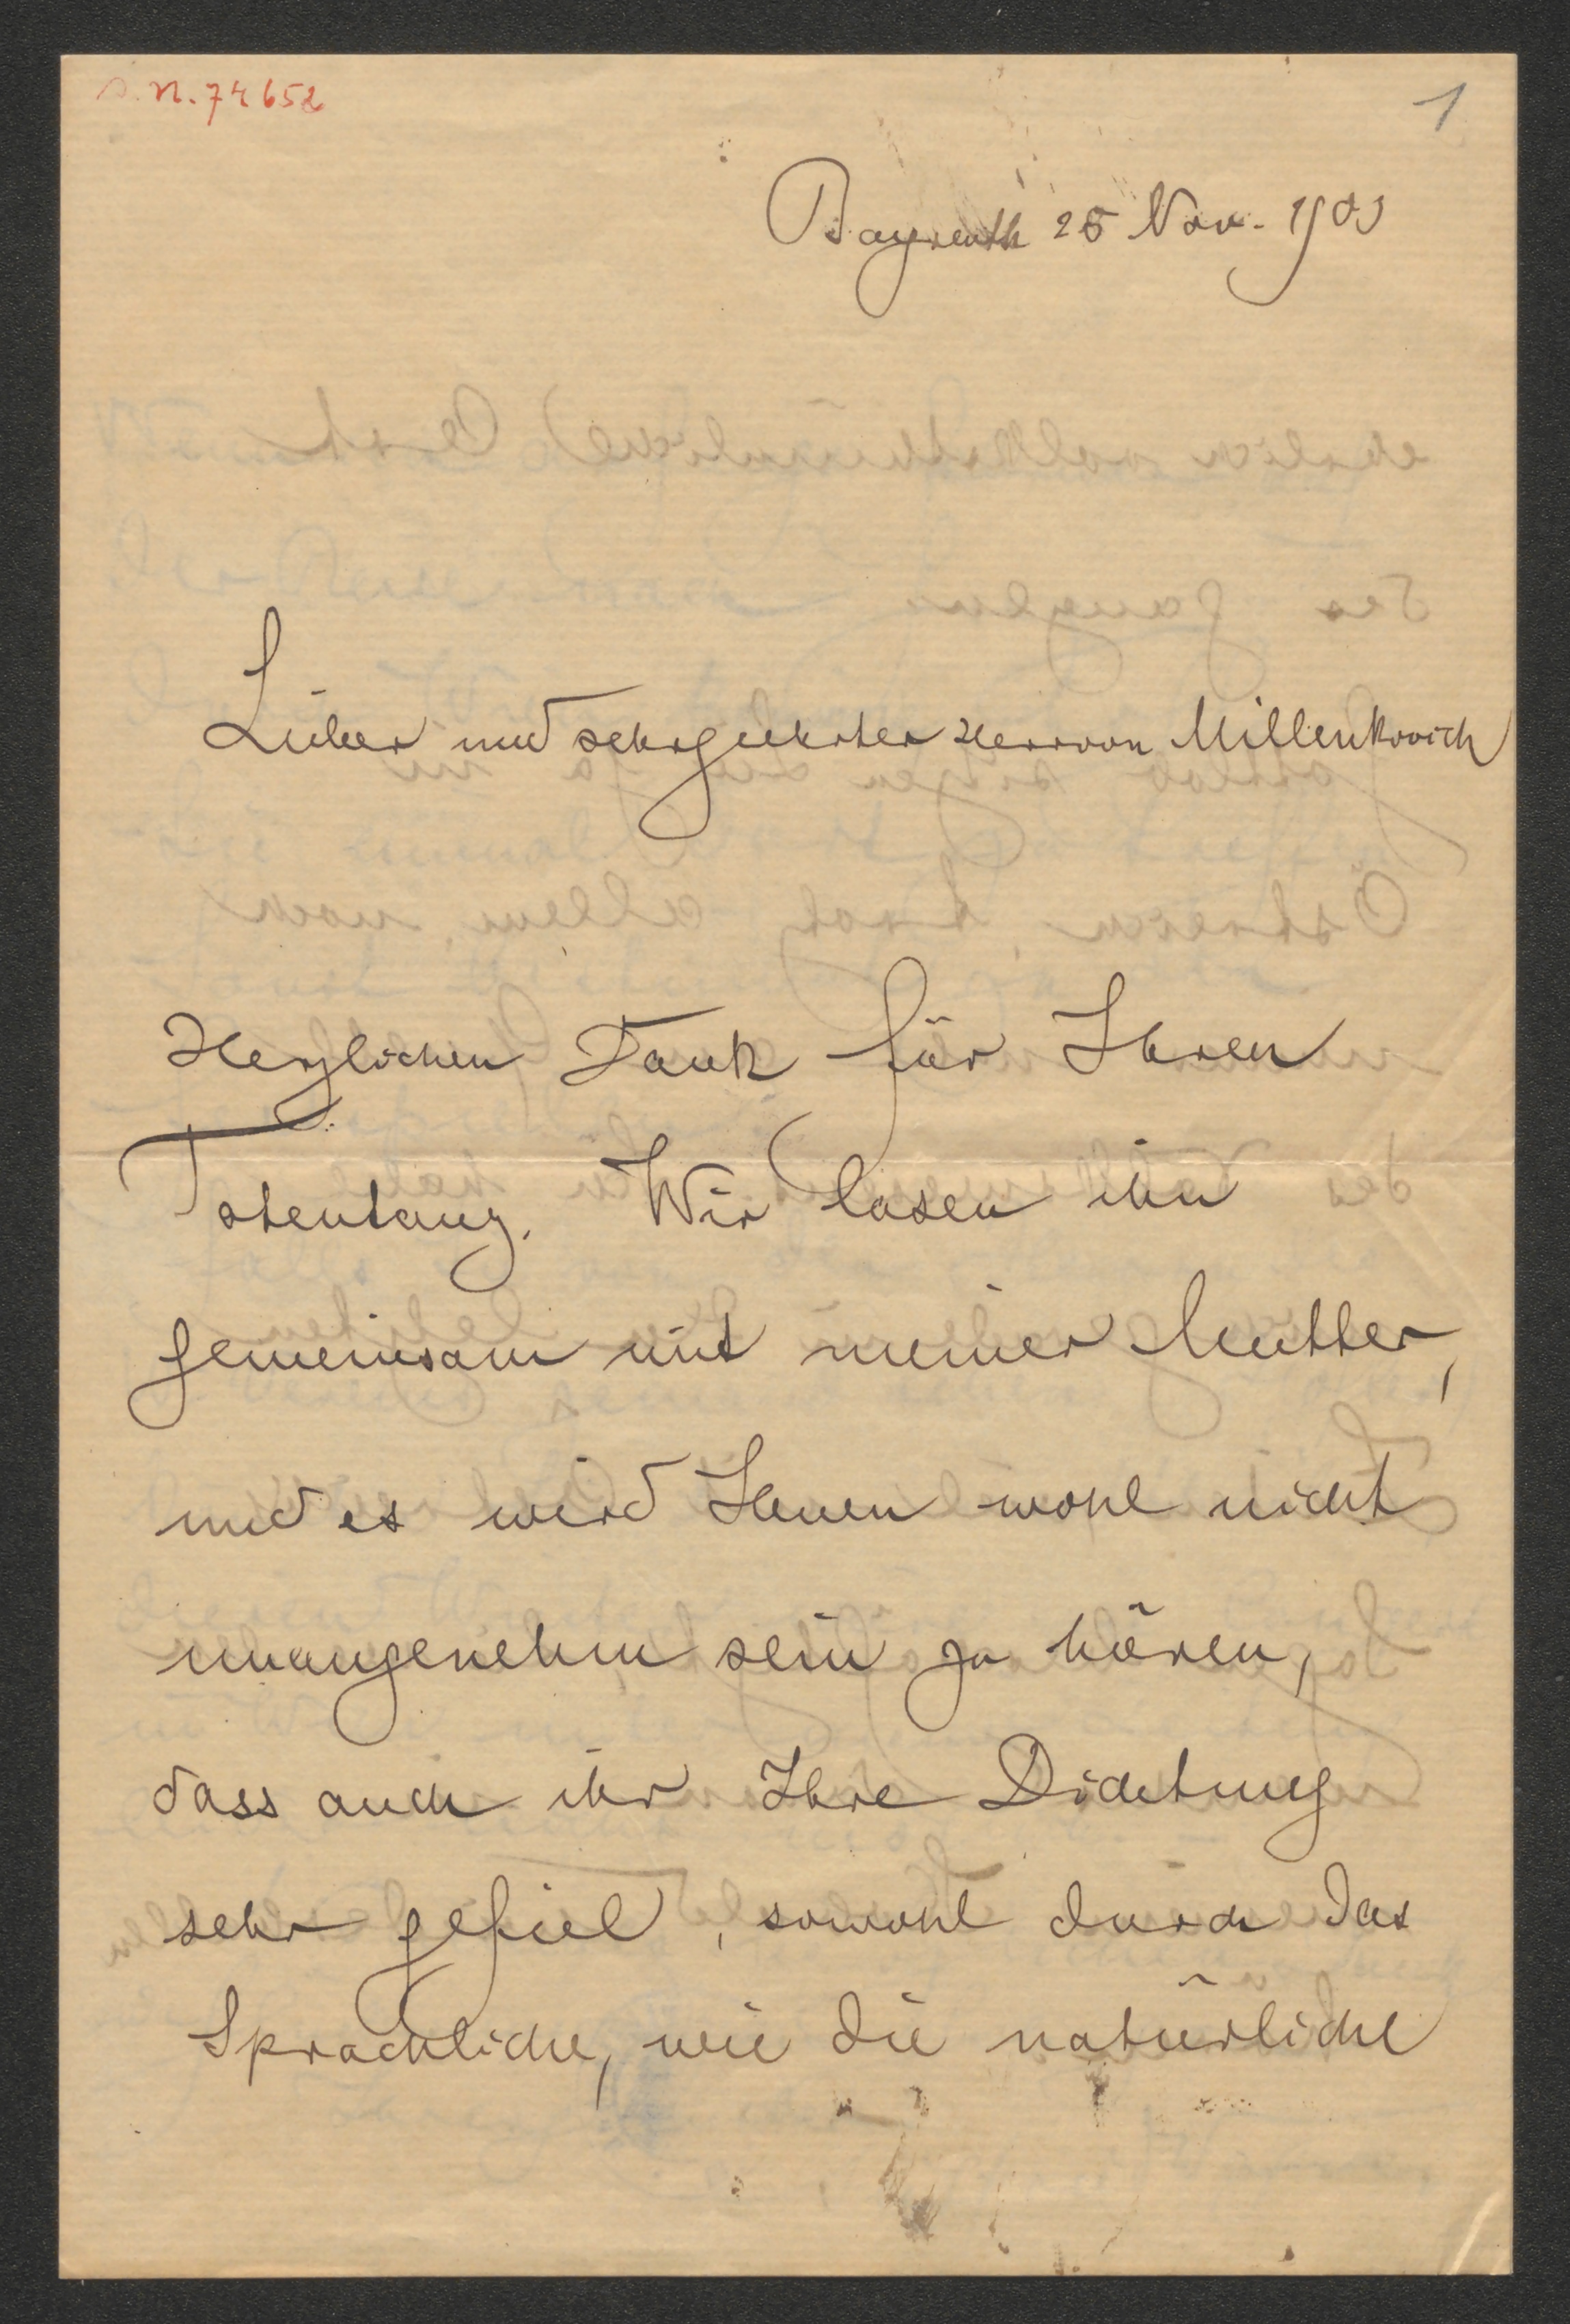 n. 74652
1
Bayreuth 25 Nov. 1903
Lieber und sehrgeehrter Herr von Millenkovich
Herzlichen Dank für Ihren
Totentanz. Wir lasen ihn
gemeinsam mit meiner Mutter,
und es wird Ihnen wohl nicht
unangenehm sein zu hören,
dass auch ihr Ihre Dichtung
sehr gefiel, sowohl durch das
Sprachliche, wie die natürliche